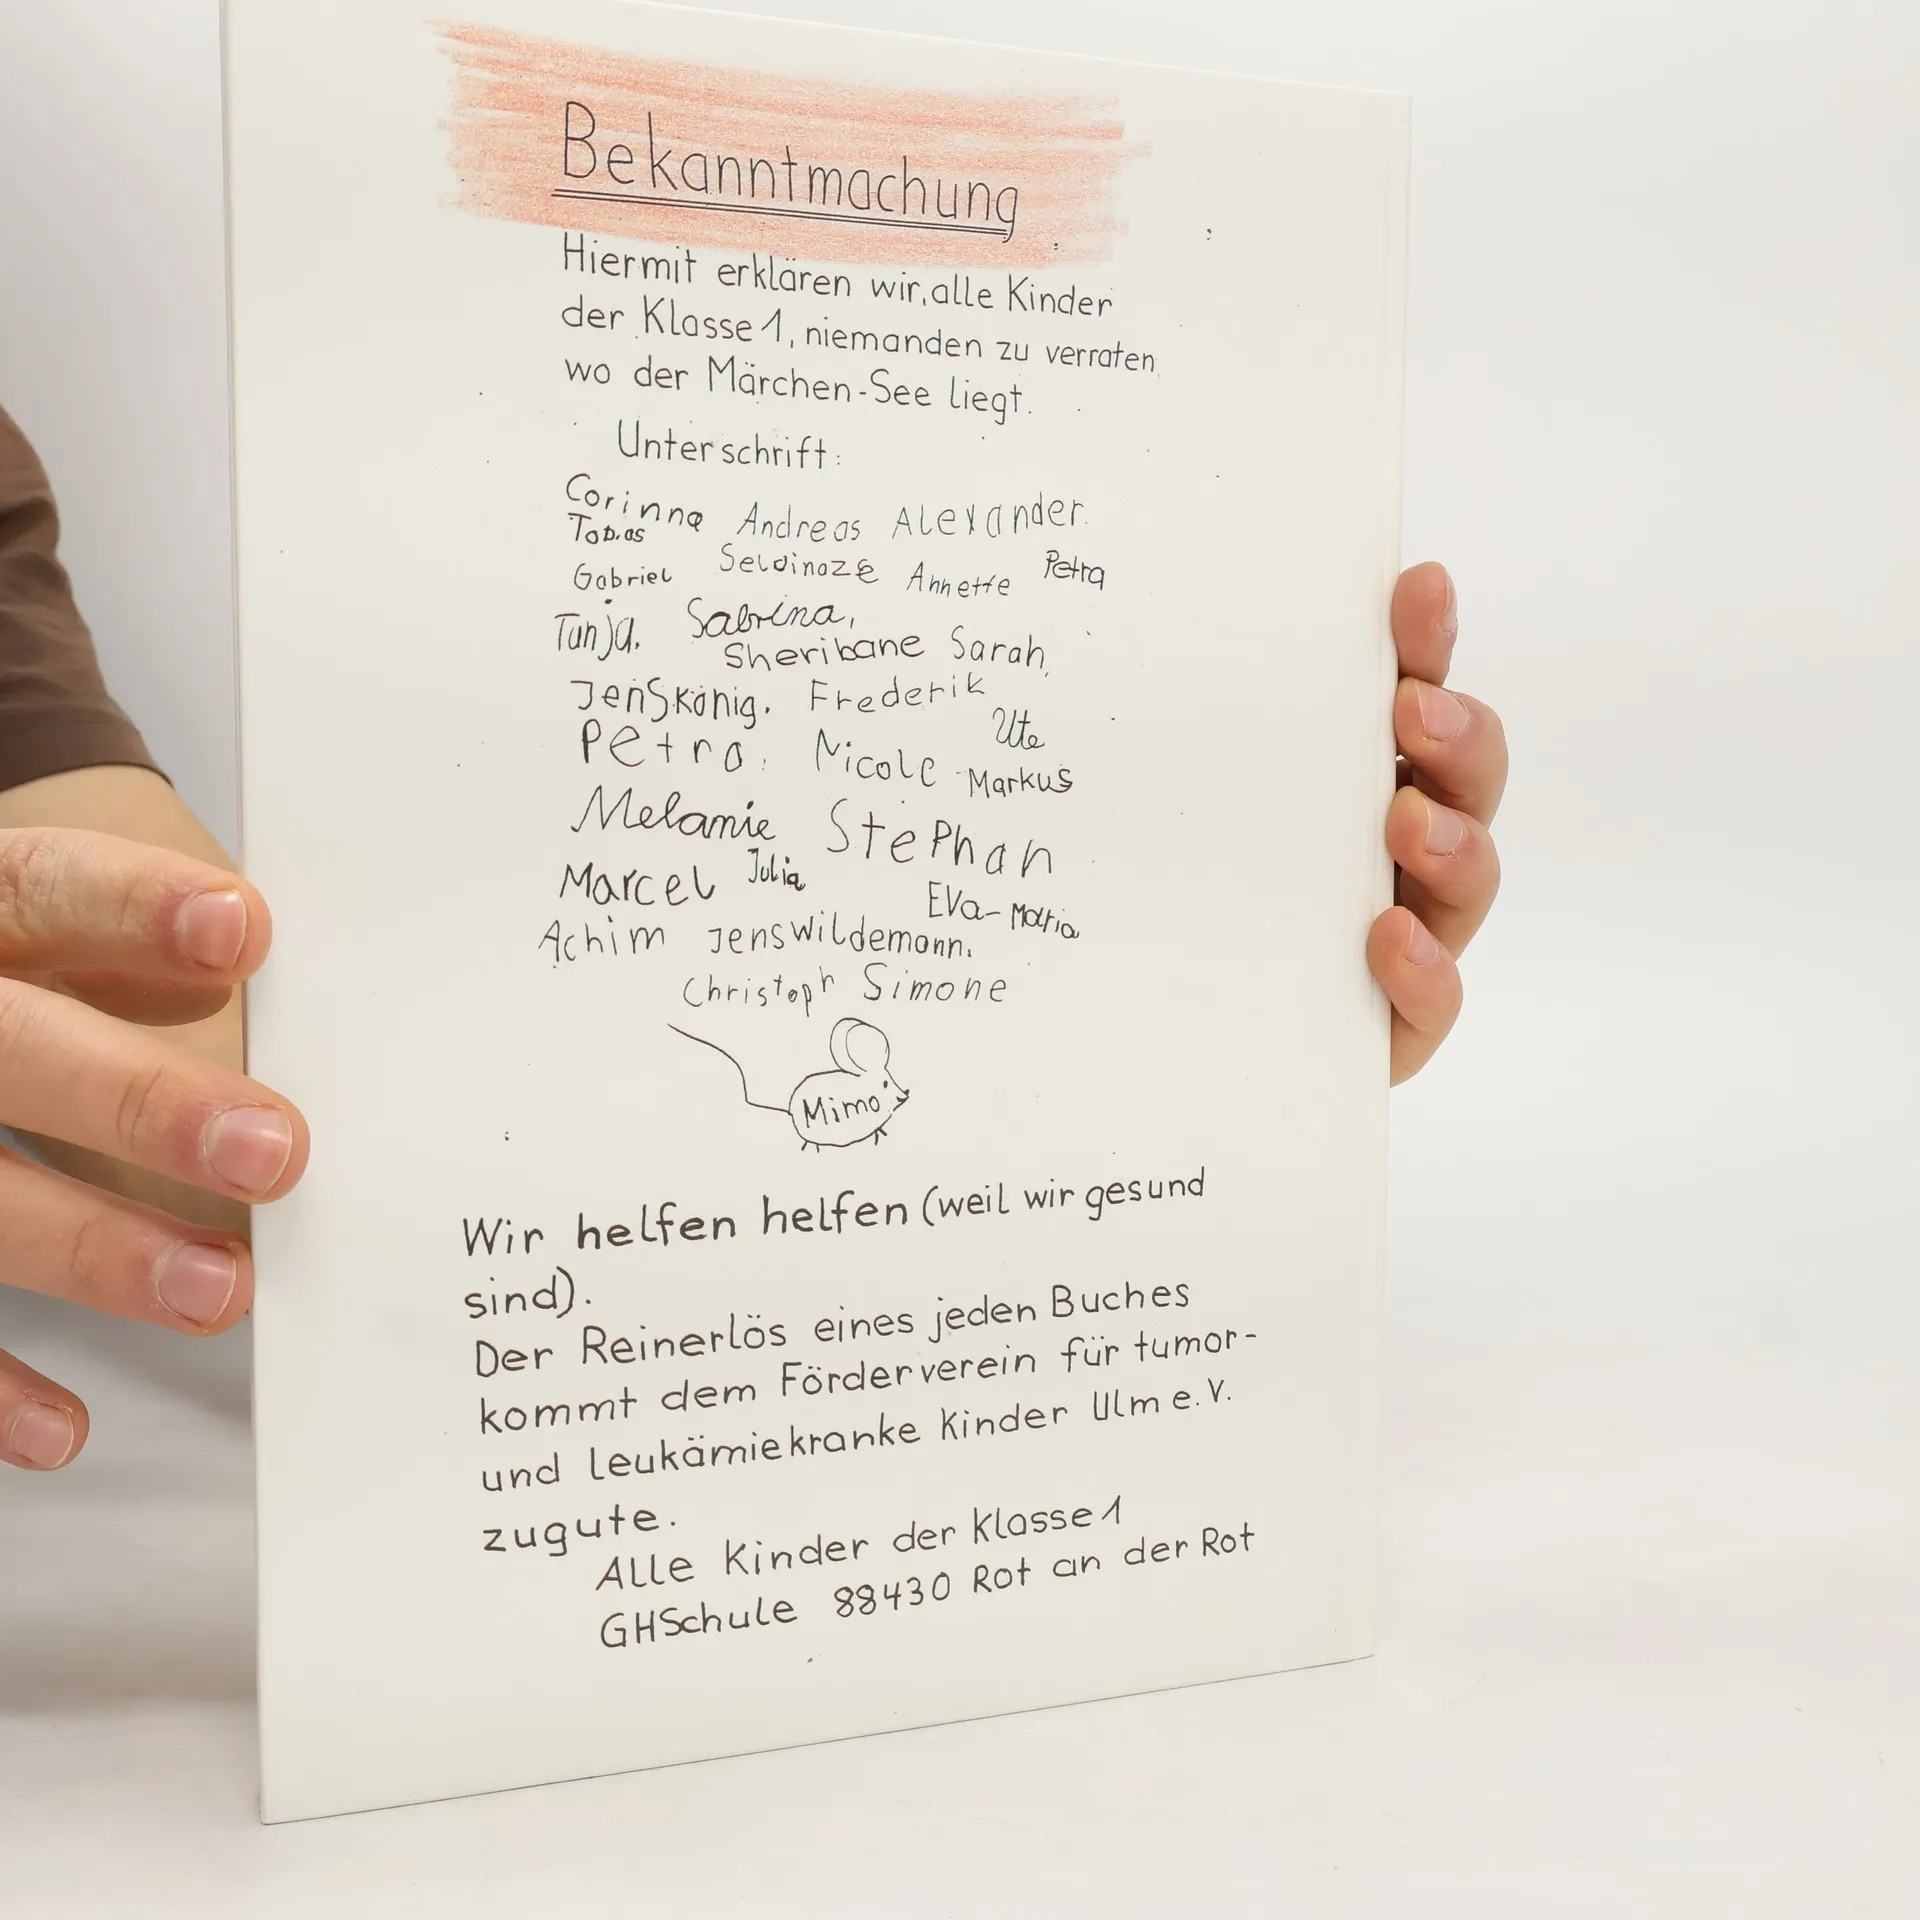 Bekanntmachung
Hiermit erklären wir, alle Kinder
der Klasse 1, niemanden zu verraten
wo der Märchen-See liegt.
Unterschrift:
Corinna Andreas Alexander.
Tobias
Gabriel Seldinaze Annette Petra
Tanja. Sabrina,
Sheribane Sarah,
Jens König. Frederik
Ute
Petra. Nicole Markus
Melanie Stephan
Marcel Julia
Eva-Maria
Achim Jens Wildemann.
Christoph Simone
Mimo
Wir helfen helfen (weil wir gesund
sind).
Der Reinerlös eines jeden Buches
kommt dem Förderverein für tumor-
und leukämiekranke Kinder Ulm e.V.
zugute.
Alle Kinder der Klasse 1
GHSchule 88430 Rot an der Rot